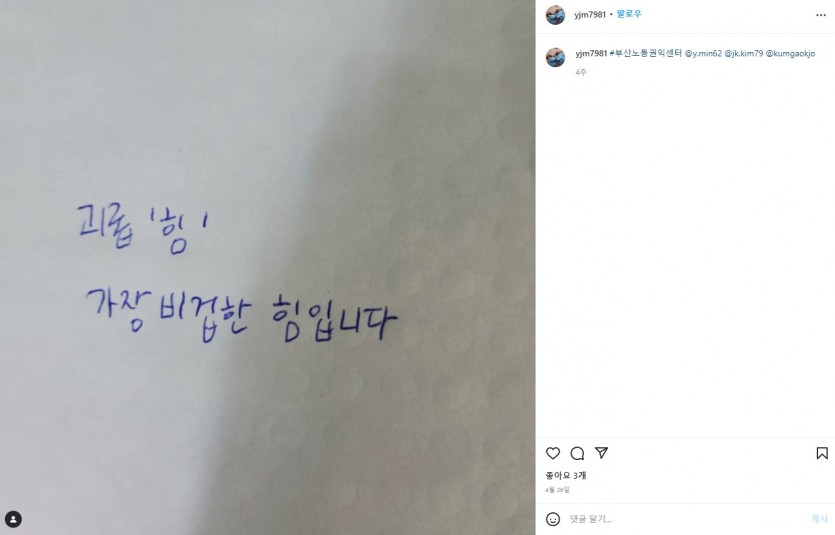 괴롭 '힘'
가장 비겁한 힘입니다
yjm7981 • 팔로우
yjm7981 #부산노동권익센터 @y.min62 @jk.kim79 @kumgaokjo
4주
좋아요 3개
4월 26일
댓글 달기...
게시